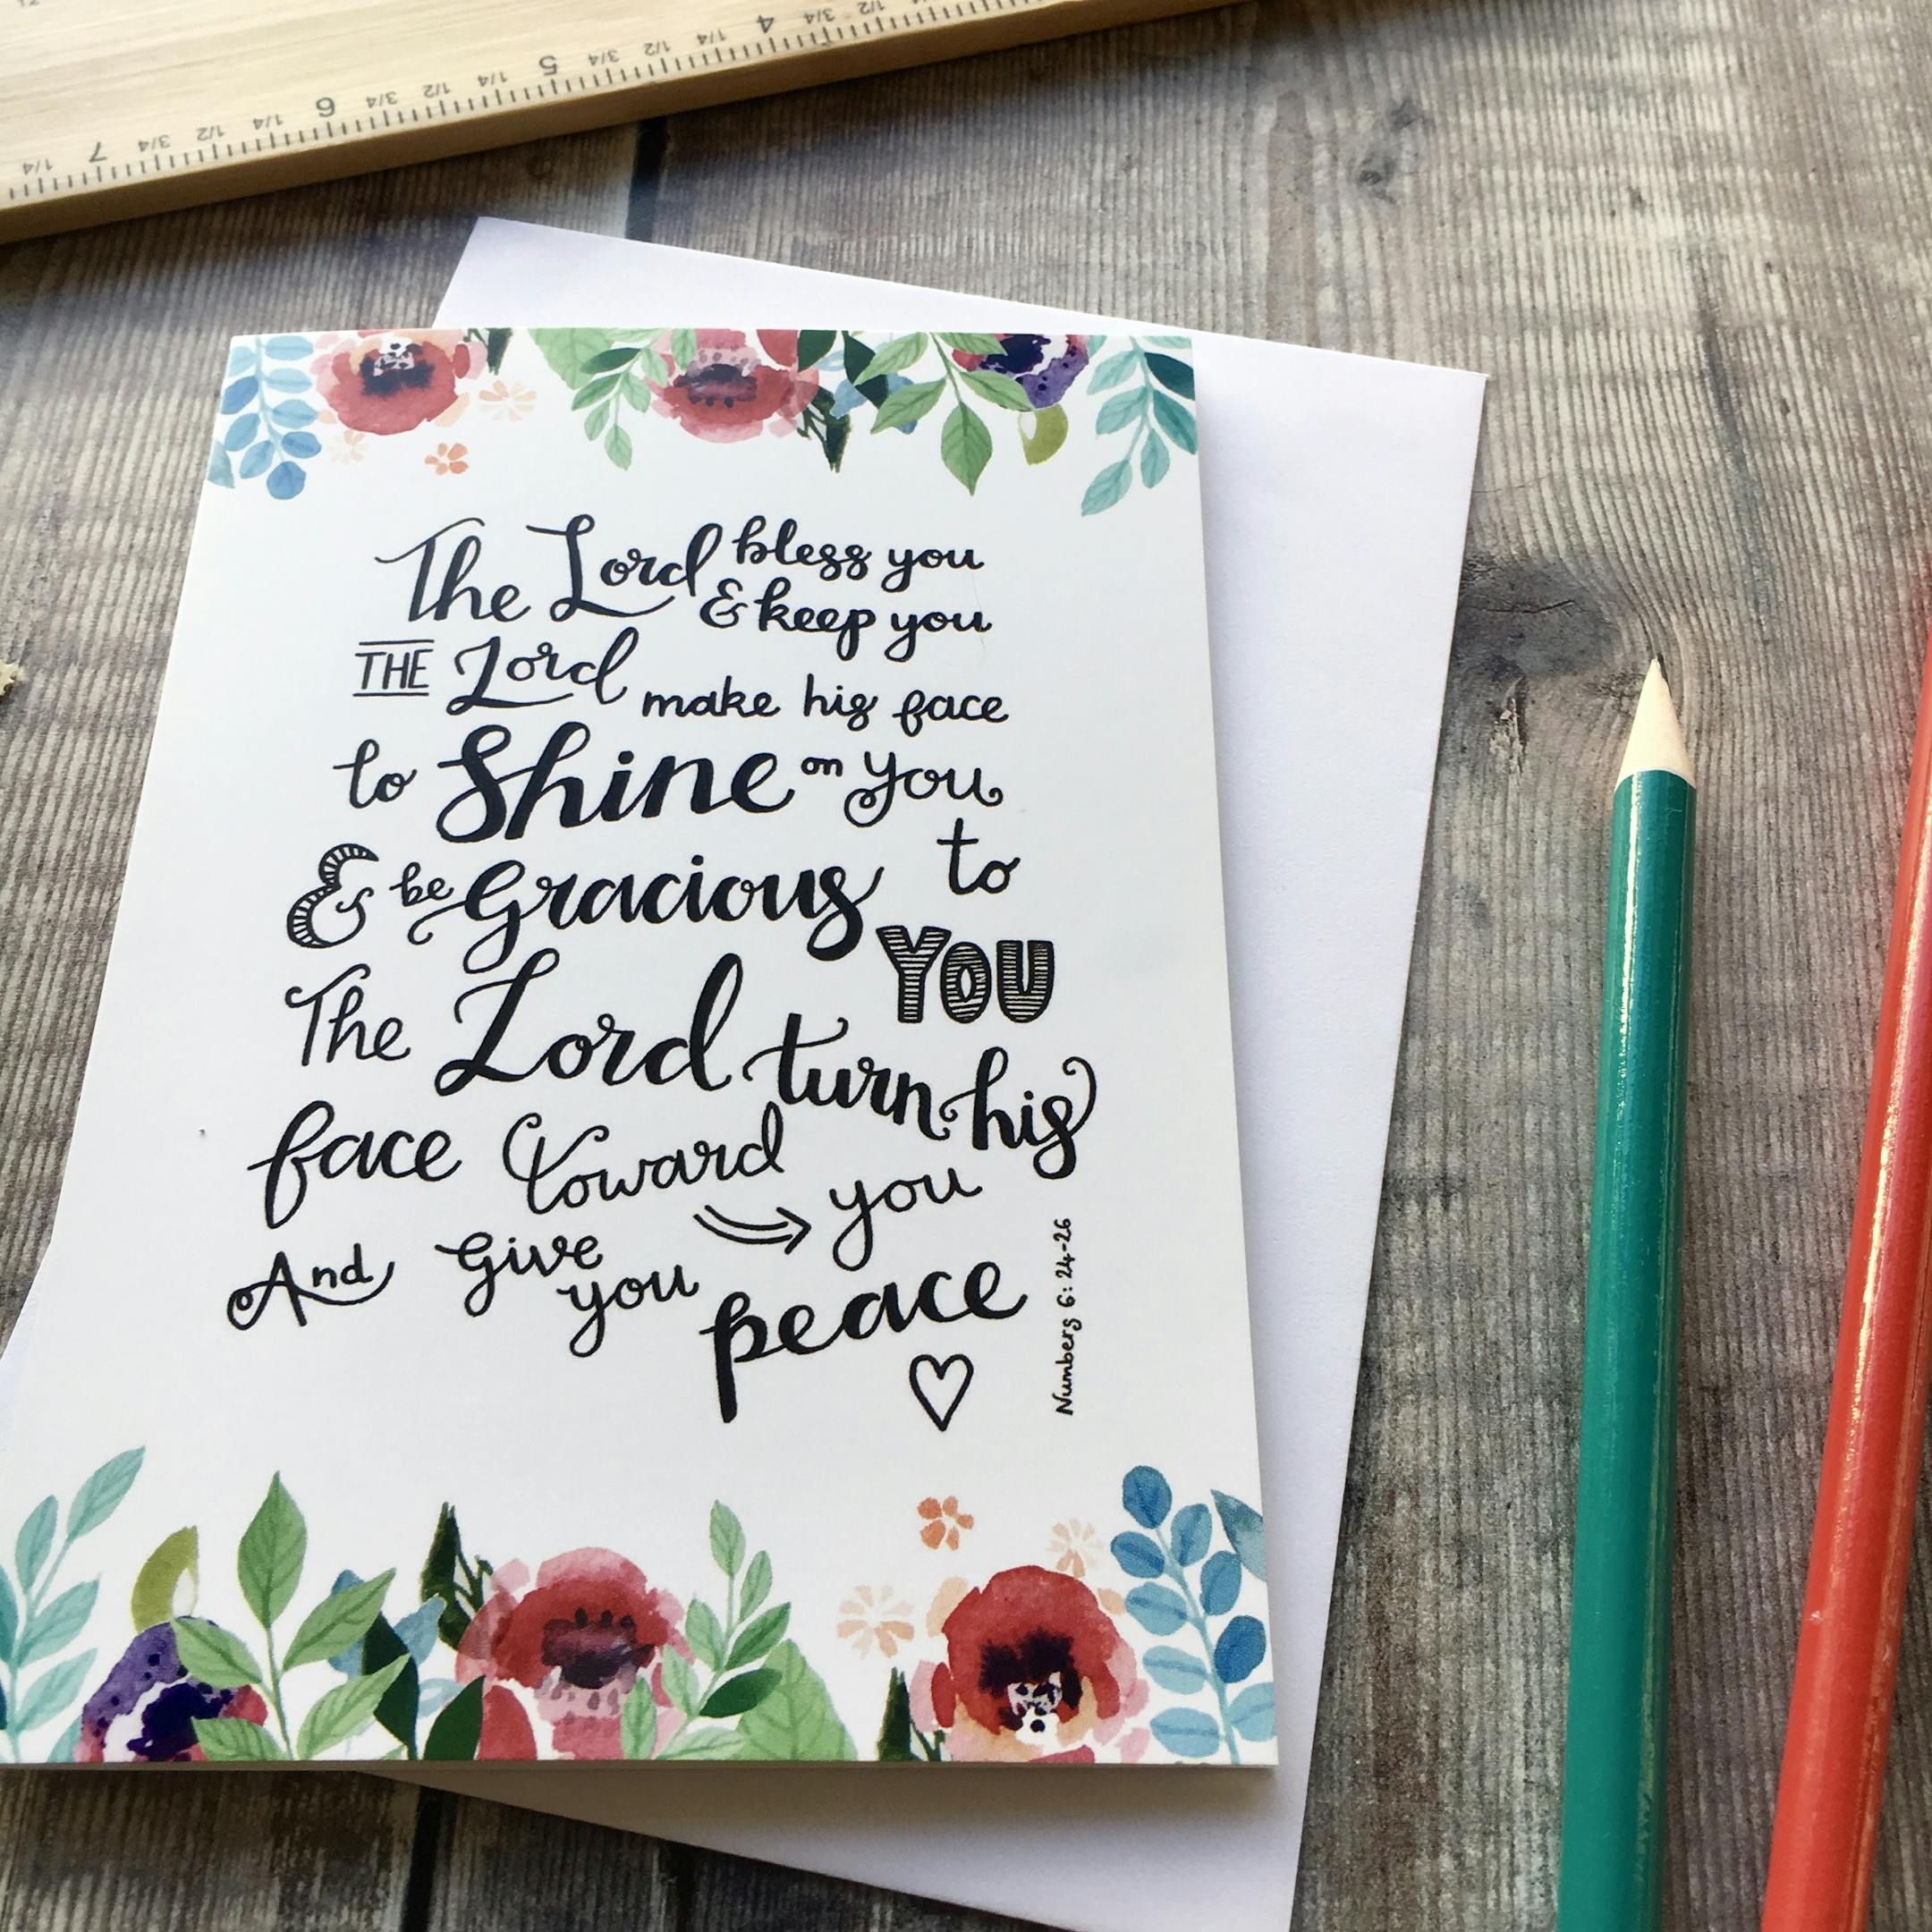 1/4 7 3/4 1/2 1/4 6 3/4 1/2 1/4 5 3/4 1/2 1/4 4 3/4 1/2
The Lord bless you
& keep you
THE Lord make his face
to Shine on you
& be Gracious to
YOU
The Lord turn his
face toward you
And Give you peace
Numbers 6: 24-26